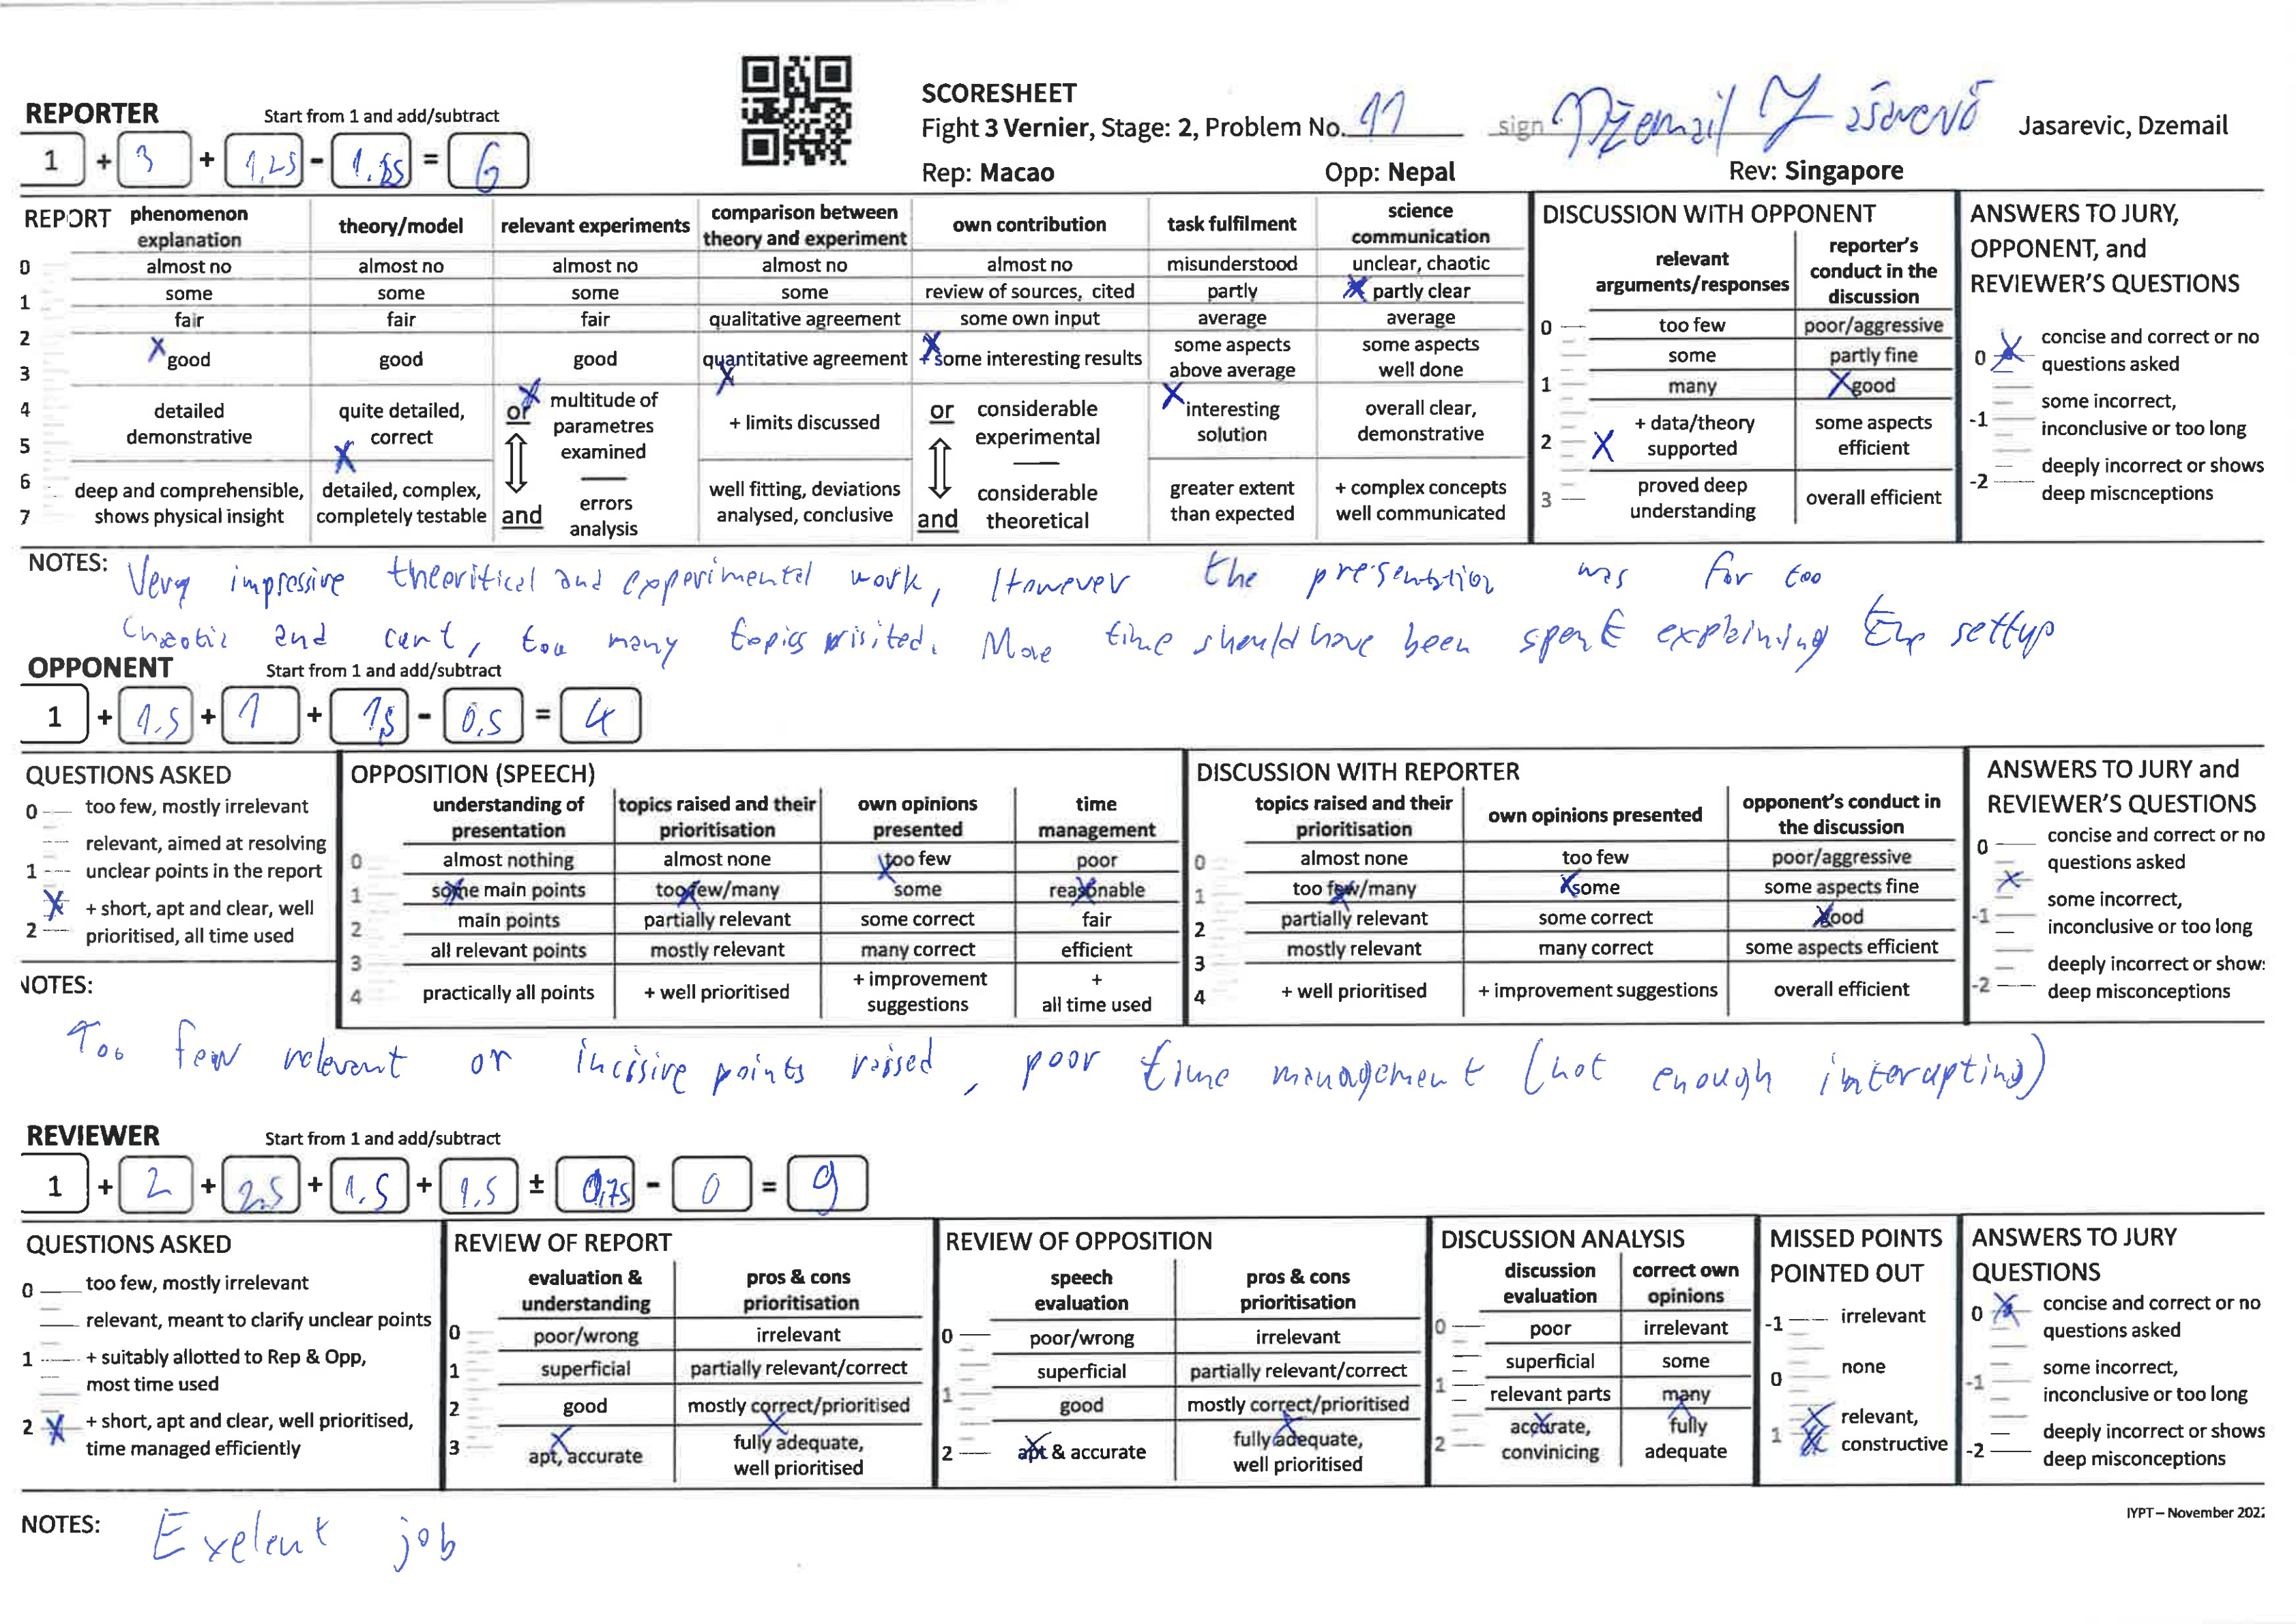 SCORESHEET
REPORTER Start from 1 and add/subtract
Fight 3 Vernier, Stage: 2, Problem No. 11 sign Džemail Jasarević Jasarevic, Dzemail
1 + 3 + 1,25 - = 6
Rep: Macao Opp: Nepal Rev: Singapore
REPORT
phenomenon explanation
theory/model
relevant experiments
comparison between theory and experiment
own contribution
task fulfilment
science communication
0 almost no almost no almost no almost no almost no misunderstood unclear, chaotic
1 some some some some review of sources, cited partly partly clear
fair fair fair qualitative agreement some own input average average
2
3 good good good quantitative agreement + some interesting results some aspects above average some aspects well done
4
5 detailed demonstrative
quite detailed, correct
or multitude of parametres examined
+ limits discussed
or considerable experimental
interesting solution
overall clear, demonstrative
6
7 deep and comprehensible, shows physical insight
detailed, complex, completely testable
and errors analysis
well fitting, deviations analysed, conclusive
and considerable theoretical
greater extent than expected
+ complex concepts well communicated
DISCUSSION WITH OPPONENT
relevant arguments/responses
reporter's conduct in the discussion
0 too few poor/aggressive
some partly fine
1 many good
2 + data/theory supported some aspects efficient
3 proved deep understanding overall efficient
ANSWERS TO JURY, OPPONENT, and REVIEWER'S QUESTIONS
0 concise and correct or no questions asked
-1 some incorrect, inconclusive or too long
-2 deeply incorrect or shows deep miscnceptions
NOTES: Very impressive theoritical and experimental work, However the presentation was far too
chaotic and curt, too many topics visited. More time should have been spent explaining the settup
OPPONENT Start from 1 and add/subtract
1 + 1.5 + 1 + 1,5 - 0,5 = 4
QUESTIONS ASKED
0 too few, mostly irrelevant
relevant, aimed at resolving
1 unclear points in the report
+ short, apt and clear, well
2 prioritised, all time used
OPPOSITION (SPEECH)
understanding of presentation
topics raised and their prioritisation
own opinions presented
time management
0 almost nothing almost none too few poor
1 some main points too few/many some reasonable
2 main points partially relevant some correct fair
3 all relevant points mostly relevant many correct efficient
4 practically all points + well prioritised + improvement suggestions + all time used
DISCUSSION WITH REPORTER
topics raised and their prioritisation
own opinions presented
opponent's conduct in the discussion
0 almost none too few poor/aggressive
1 too few/many some some aspects fine
2 partially relevant some correct good
3 mostly relevant many correct some aspects efficient
4 + well prioritised + improvement suggestions overall efficient
ANSWERS TO JURY and REVIEWER'S QUESTIONS
0 concise and correct or no questions asked
-1 some incorrect, inconclusive or too long
-2 deeply incorrect or show: deep misconceptions
NOTES:
Too few relevant or incisive points raised, poor time management (not enough interupting)
REVIEWER Start from 1 and add/subtract
1 + 2 + 2.5 + 1.5 + 1.5 ± 0,75 - 0 = 9
QUESTIONS ASKED
0 too few, mostly irrelevant
relevant, meant to clarify unclear points
1 + suitably allotted to Rep & Opp, most time used
2 + short, apt and clear, well prioritised, time managed efficiently
REVIEW OF REPORT
evaluation & understanding
pros & cons prioritisation
0 poor/wrong irrelevant
1 superficial partially relevant/correct
2 good mostly correct/prioritised
3 apt, accurate fully adequate, well prioritised
REVIEW OF OPPOSITION
speech evaluation
pros & cons prioritisation
0 poor/wrong irrelevant
superficial partially relevant/correct
1 good mostly correct/prioritised
2 apt & accurate fully adequate, well prioritised
DISCUSSION ANALYSIS
discussion evaluation
correct own opinions
0 poor irrelevant
superficial some
1 relevant parts many
2 accurate, convinicing fully adequate
MISSED POINTS POINTED OUT
-1 irrelevant
0 none
1 relevant, constructive
ANSWERS TO JURY QUESTIONS
0 concise and correct or no questions asked
-1 some incorrect, inconclusive or too long
-2 deeply incorrect or shows deep misconceptions
NOTES: Exelent job
IYPT – November 2022